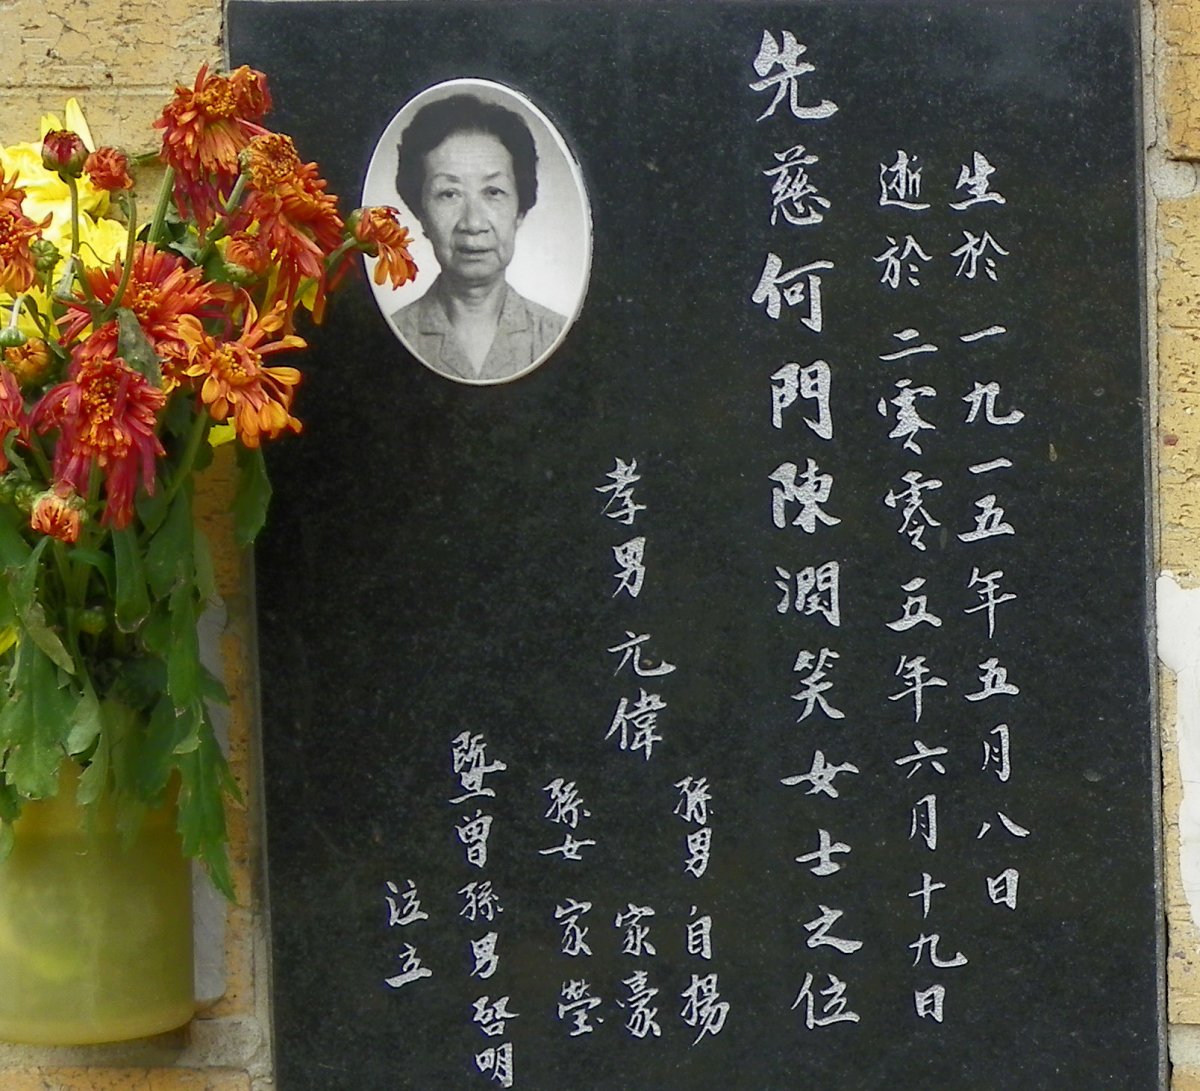 生於一九一五年五月八日
逝於二零零五年六月十九日
先慈何門陳潤笑女士之位
孝男 亢偉
孫男 自揚
家豪
孫女 家瑩
暨曾孫男 啓明
泣立